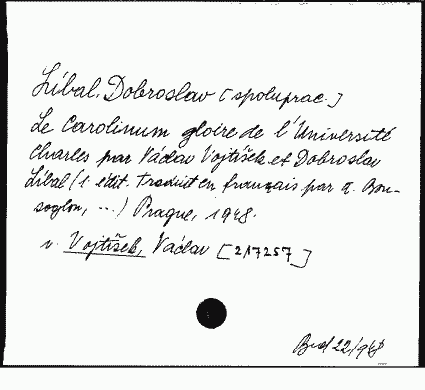 Líbal, Dobroslav [spoluprac.]
Le Carolinum gloire de l'Université
Charles par Václav Vojtíšek et Dobroslav
Líbal (1. édit. Traduit en français par
...) Prague, 1948.
v. Vojtíšek, Václav [217257]
22/948